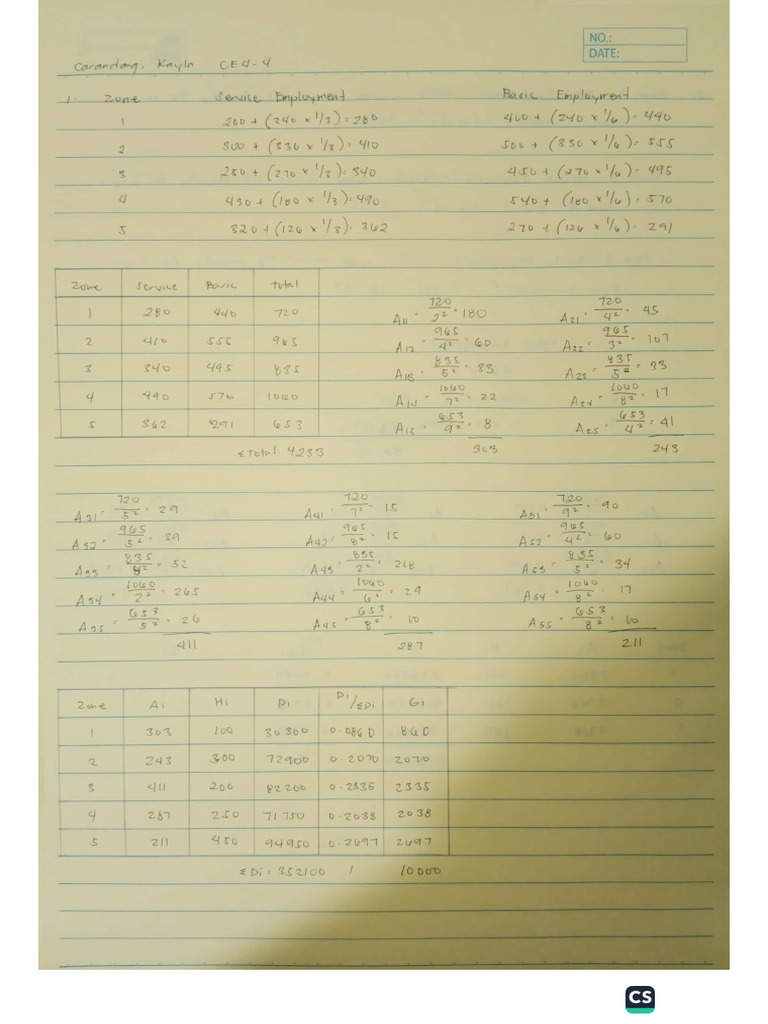 NO.:
DATE:
Carandang, Kayla CE 4-4
1. Zone Service Employment Basic Employment
1 200 + (240 x 1/3) = 280 400 + (240 x 1/6) = 440
2 300 + (330 x 1/3) = 410 500 + (330 x 1/6) = 555
3 250 + (270 x 1/3) = 340 450 + (270 x 1/6) = 495
4 430 + (180 x 1/3) = 490 540 + (180 x 1/6) = 570
5 320 + (126 x 1/3) = 362 270 + (126 x 1/6) = 291
Zone Service Basic Total
1 280 440 720
2 410 555 965
3 340 495 835
4 490 570 1060
5 362 291 653
ΣTotal: 4233
A11 = 720/2² = 180
A12 = 965/4² = 60
A13 = 835/5² = 33
A14 = 1060/7² = 22
A15 = 653/9² = 8
303
A21 = 720/4² = 45
A22 = 965/3² = 107
A23 = 835/5² = 33
A24 = 1060/8² = 17
A25 = 653/4² = 41
243
A31 = 720/5² = 29
A32 = 965/5² = 39
A33 = 835/4² = 52
A34 = 1060/2² = 265
A35 = 653/5² = 26
411
A41 = 720/7² = 15
A42 = 965/8² = 15
A43 = 835/2² = 218
A44 = 1060/6² = 29
A45 = 653/8² = 10
287
A51 = 720/9² = 90
A52 = 965/4² = 60
A53 = 835/5² = 34
A54 = 1060/8² = 17
A55 = 653/8² = 10
211
Zone Ai Hi Di Di/ΣDi Gi
1 303 100 30300 0.0860 860
2 243 300 72900 0.2070 2070
3 411 200 82200 0.2335 2335
4 287 250 71750 0.2038 2038
5 211 450 94950 0.2697 2697
ΣDi = 352100 1 10000
CS